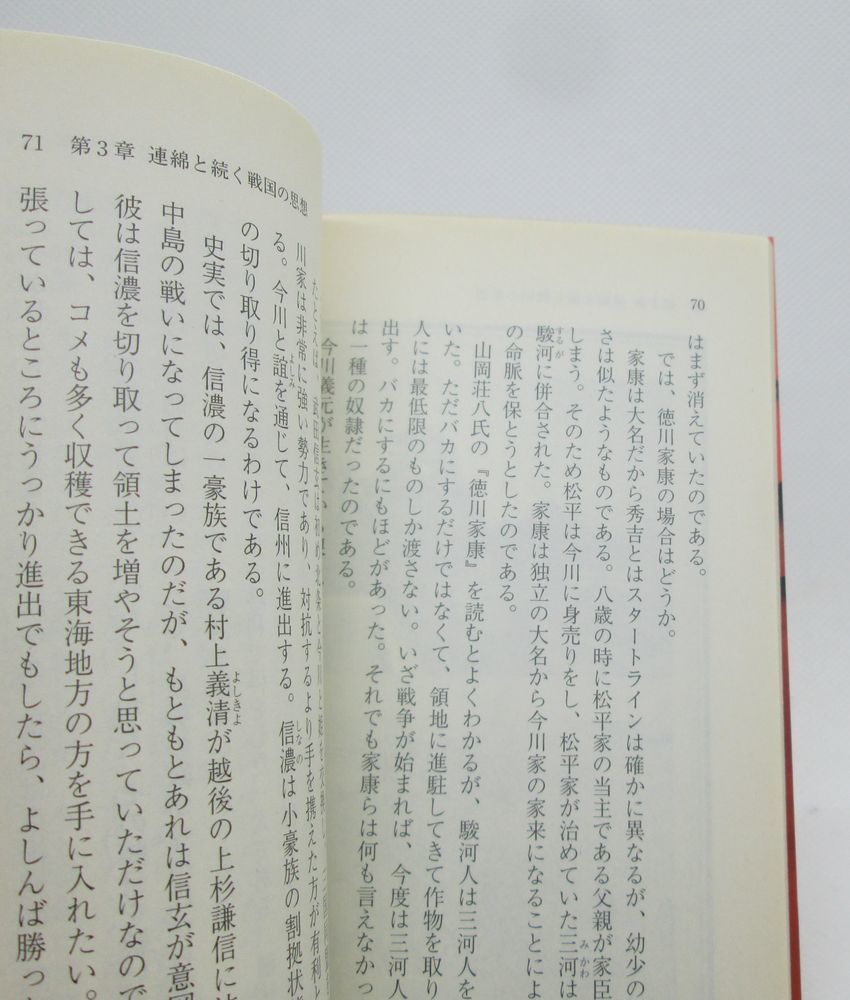 70
はまず消えていたのである。
では、徳川家康の場合はどうか。
家康は大名だから秀吉とはスタートラインは確かに異なるが、幼少の
さは似たようなものである。八歳の時に松平家の当主である父親が家臣
しまう。そのため松平は今川に身売りをし、松平家が治めていた三河は
駿河に併合された。家康は独立の大名から今川家の家来になることによ
の命脈を保とうとしたのである。
山岡荘八氏の『徳川家康』を読むとよくわかるが、駿河人は三河人を
いた。ただバカにするだけではなくて、領地に進駐してきて作物を取り
人には最低限のものしか渡さない。いざ戦争が始まれば、今度は三河人
出す。バカにするにもほどがあった。それでも家康らは何も言えなかっ
は一種の奴隷だったのである。
今川義元が生きている
71 第3章 連綿と続く戦国の思想
たとえば、武田信玄は初め北条と今川と
川家は非常に強い勢力であり、対抗するより手を携えた方が有利と
る。今川と誼を通じて、信州に進出する。信濃は小豪族の割拠状
の切り取り得になるわけである。
史実では、信濃の一豪族である村上義清が越後の上杉謙信に
中島の戦いになってしまったのだが、もともとあれは信玄が意
彼は信濃を切り取って領土を増やそうと思っていただけなので
しては、コメも多く収穫できる東海地方の方を手に入れたい。
張っているところにうっかり進出でもしたら、よしんば勝っ